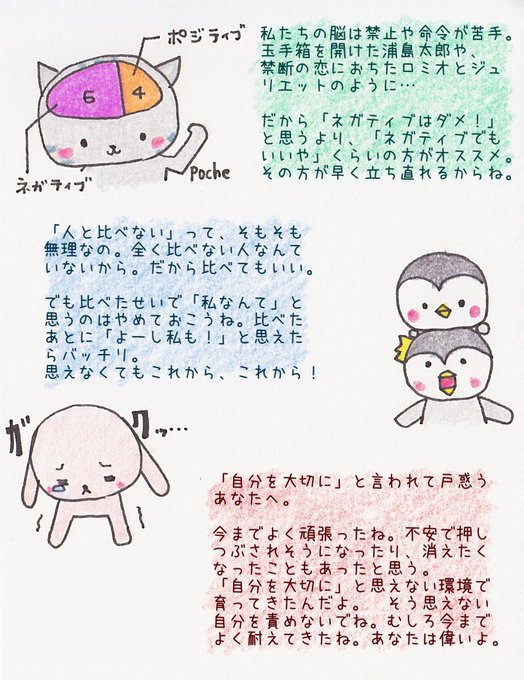 ポジティブ
6
4
ネガティブ
Poche
私たちの脳は禁止や命令が苦手。
玉手箱を開けた浦島太郎や、
禁断の恋におちたロミオとジュ
リエットのように…
だから「ネガティブはダメ！」
と思うより、「ネガティブでも
いいや」くらいの方がオススメ。
その方が早く立ち直れるからね。
「人と比べない」って、そもそも
無理なの。全く比べない人なんて
いないから。だから比べてもいい。
でも比べたせいで「私なんて」と
思うのはやめておこうね。比べた
あとに「よーし私も！」と思えた
らバッチリ。
思えなくてもこれから、これから！
ガクッ…
「自分を大切に」と言われて戸惑う
あなたへ。
今までよく頑張ったね。不安で押し
つぶされそうになったり、消えたく
なったこともあったと思う。
「自分を大切に」と思えない環境で
育ってきたんだよ。　そう思えない
自分を責めないでね。むしろ今まで
よく耐えてきたね。あなたは偉いよ。